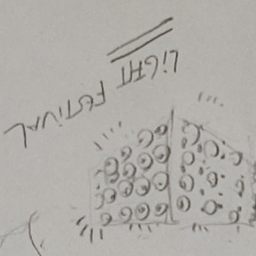 LIGHT FESTIVAL